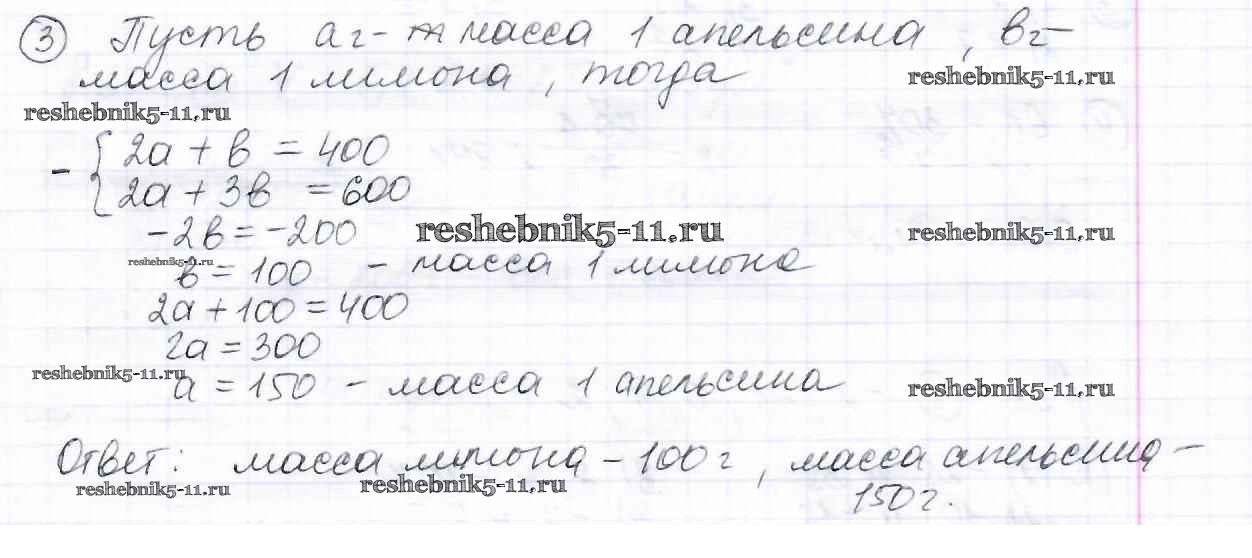 ③ Пусть a г - масса 1 апельсина, в г -
масса 1 лимона, тогда
reshebnik5-11.ru
reshebnik5-11.ru
- { 2a + в = 400
2a + 3в = 600
-2в = -200
reshebnik5-11.ru
reshebnik5-11.ru
reshebnik5-11.ru
в = 100 - масса 1 лимона
2a + 100 = 400
2a = 300
reshebnik5-11.ru
a = 150 - масса 1 апельсина
reshebnik5-11.ru
Ответ: масса лимона - 100 г, масса апельсина -
reshebnik5-11.ru
reshebnik5-11.ru
150 г.